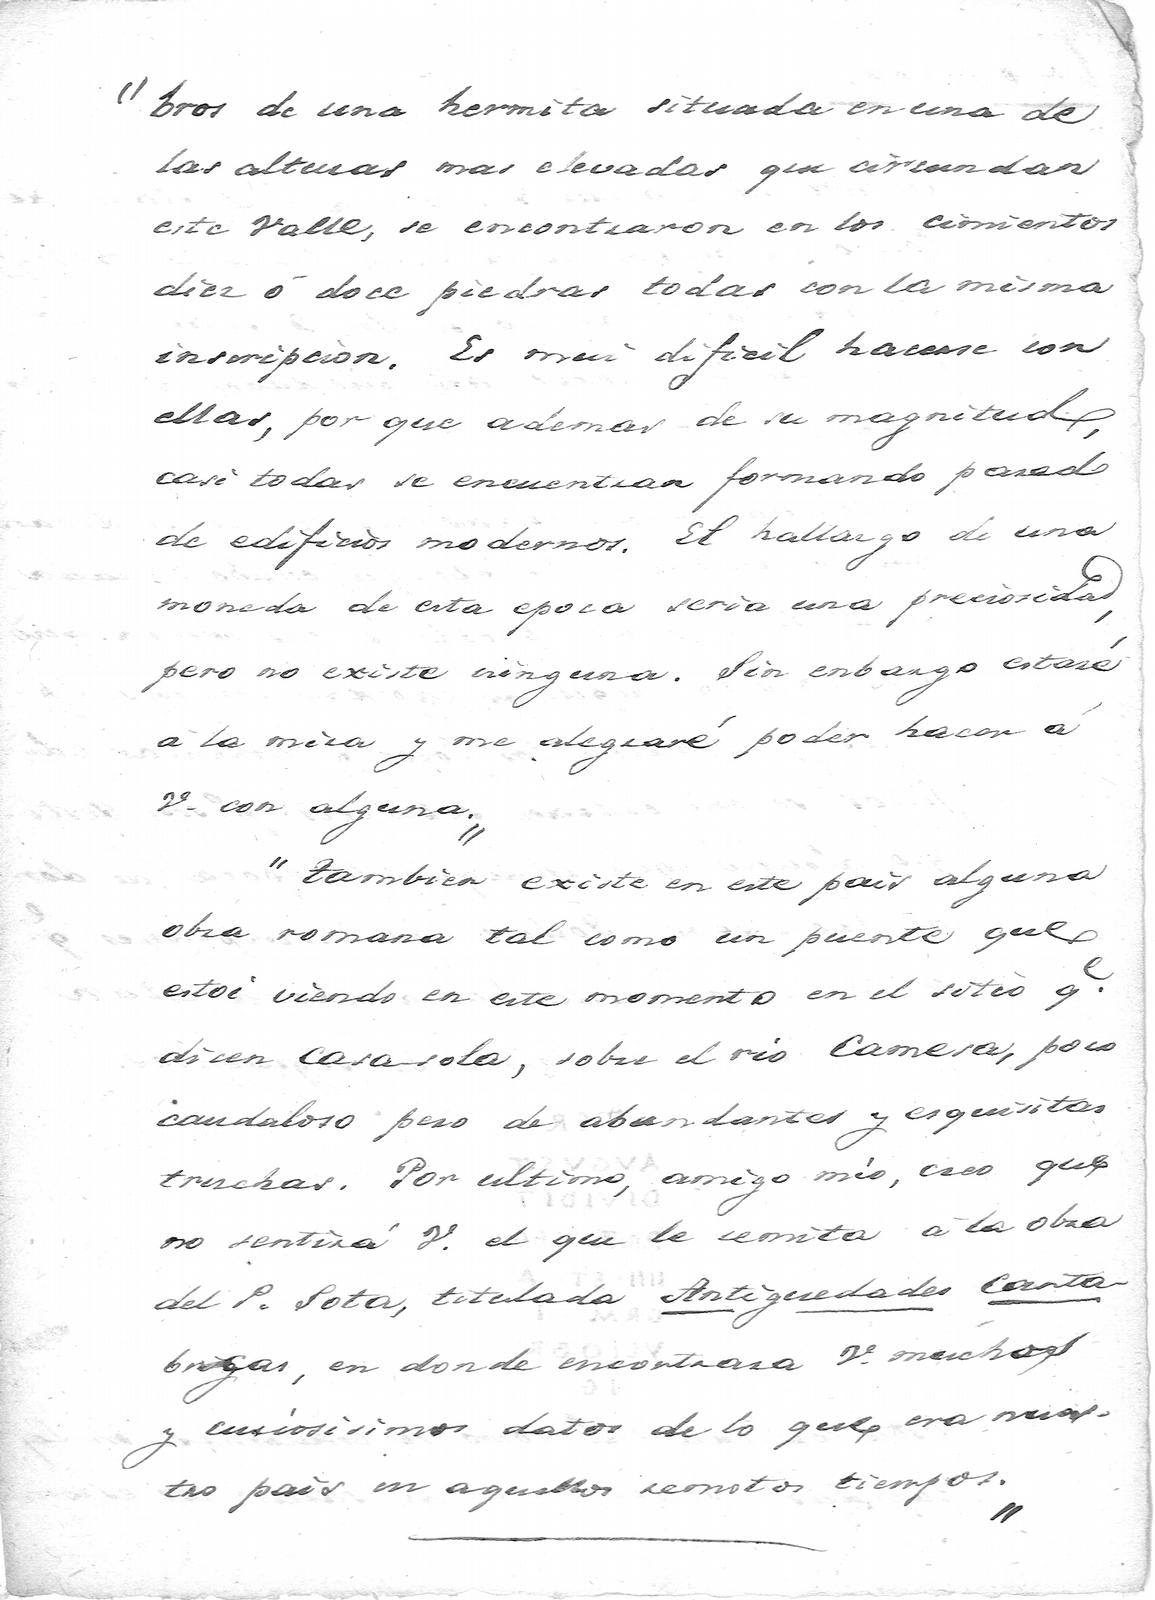 " bros de una hermita situada en una de
las alturas mas elevadas que circundan
este Valle, se encontraron en los cimientos
diez ó doce piedras todas con la misma
inscripcion. Es mui dificil hacerse con
ellas, por que ademas de su magnitud,
casi todas se encuentran formando pared
de edificios modernos. El hallazgo de una
moneda de esta epoca seria una preciosidad,
pero no existe ninguna. Sin enbargo estaré
a la mira y me alegraré poder hacer á
V. con alguna."
"Tambien existe en este pais alguna
obra romana tal como un puente que
estoi viendo en este momento en el sitio q.e
dicen Casa-sola, sobre el rio Camesa, poco
caudaloso pero de abundantes y esquisitas
truchas. Por ultimo, amigo mio, creo que
no sentirá V. el que le remita a la obra
del P. Sota, titulada Antiguedades Canta-
brigas, en donde encontrara V. muchos
y curiosisimos datos de lo que era nues-
tro pais en aquellos remotos tiempos."